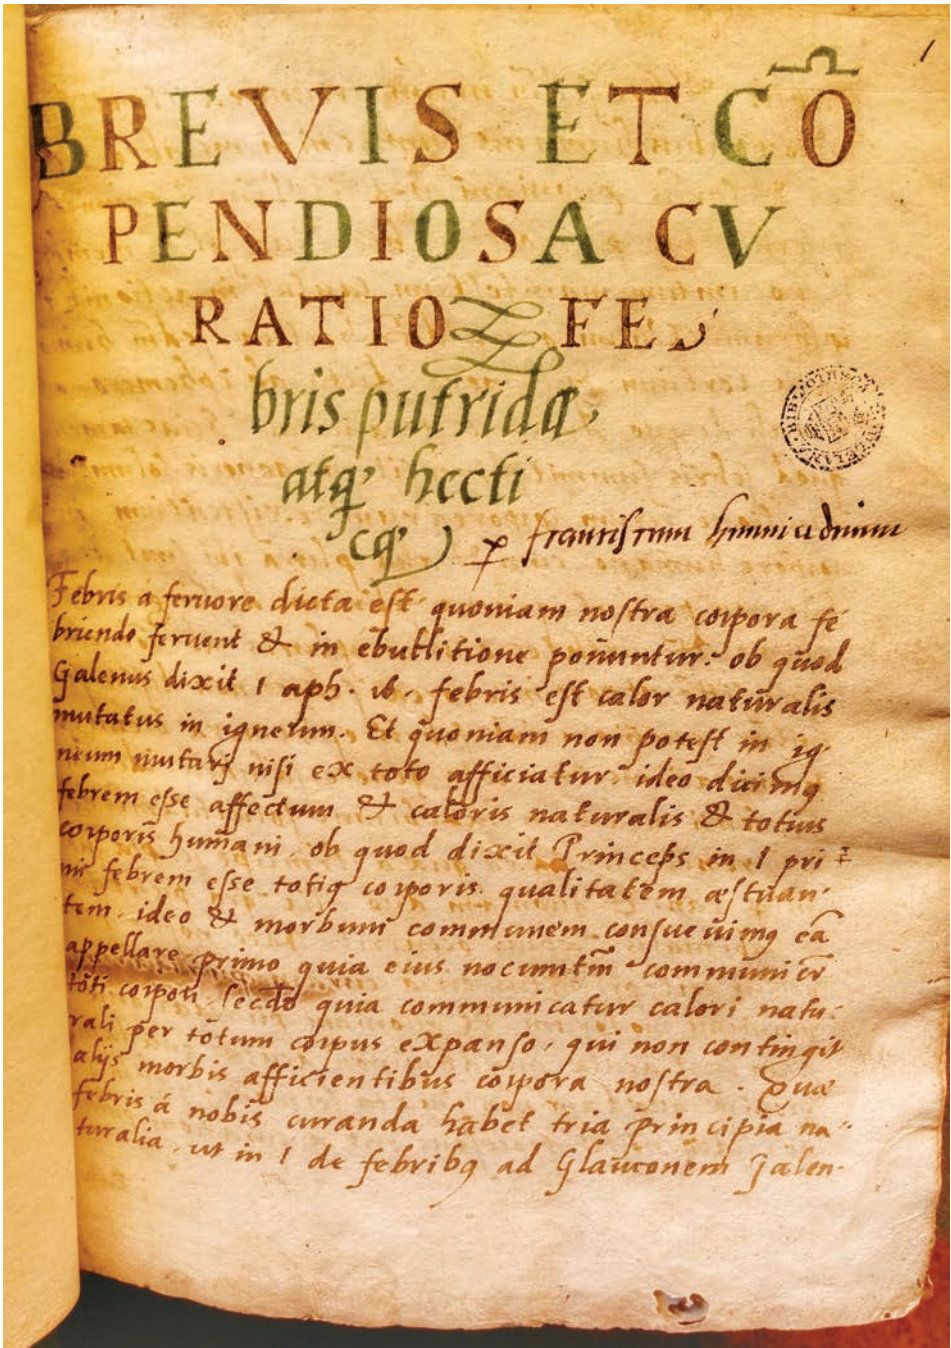 1
BREVIS ET CÕ
PENDIOSA CV
RATIO FE
bris putridæ
atq hecti
cæ
Febris á feruore dicta est quoniam nostra corpora fe
briendo feruent & in ebullitione ponuntur: ob quod
Galenus dixit 1 aph. febris est calor naturalis
mutatus in igneum. Et quoniam non potest in ig-
neum mutarj nisi ex toto afficiatur ideo dicimq
febrem esse affectum & caloris naturalis & totius
corporis humani. ob quod dixit Princeps in 1 pri
mi febrem esse totiq corporis qualitatem æstuan-
tem. ideo & morbum communem consueuimq eã
appellare primo quia eius nocumtm̃ communicr̃
toti corpori secdo quia communicatur calori natu-
rali per totum corpus expanso, qui non contingit
alijs morbis afficientibus corpora nostra. Quæ
febris á nobis curanda habet tria principia na-
turalia. ut in 1 de febribq ad Glauconem Galen-